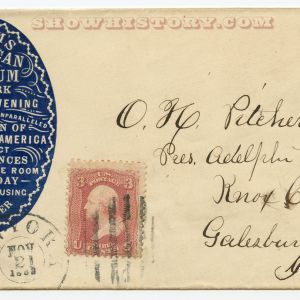 SHOWHISTORY.COM
AN
UM
RK
VENING
UNPARALLELED
N OF
AMERICA
CT
NCES
E ROOM
DAY
OUSING
ER
O. H. Pitcher
Pres. Adelphi
Knox C
Galesbur
3 3
U
YORK
NOV
21